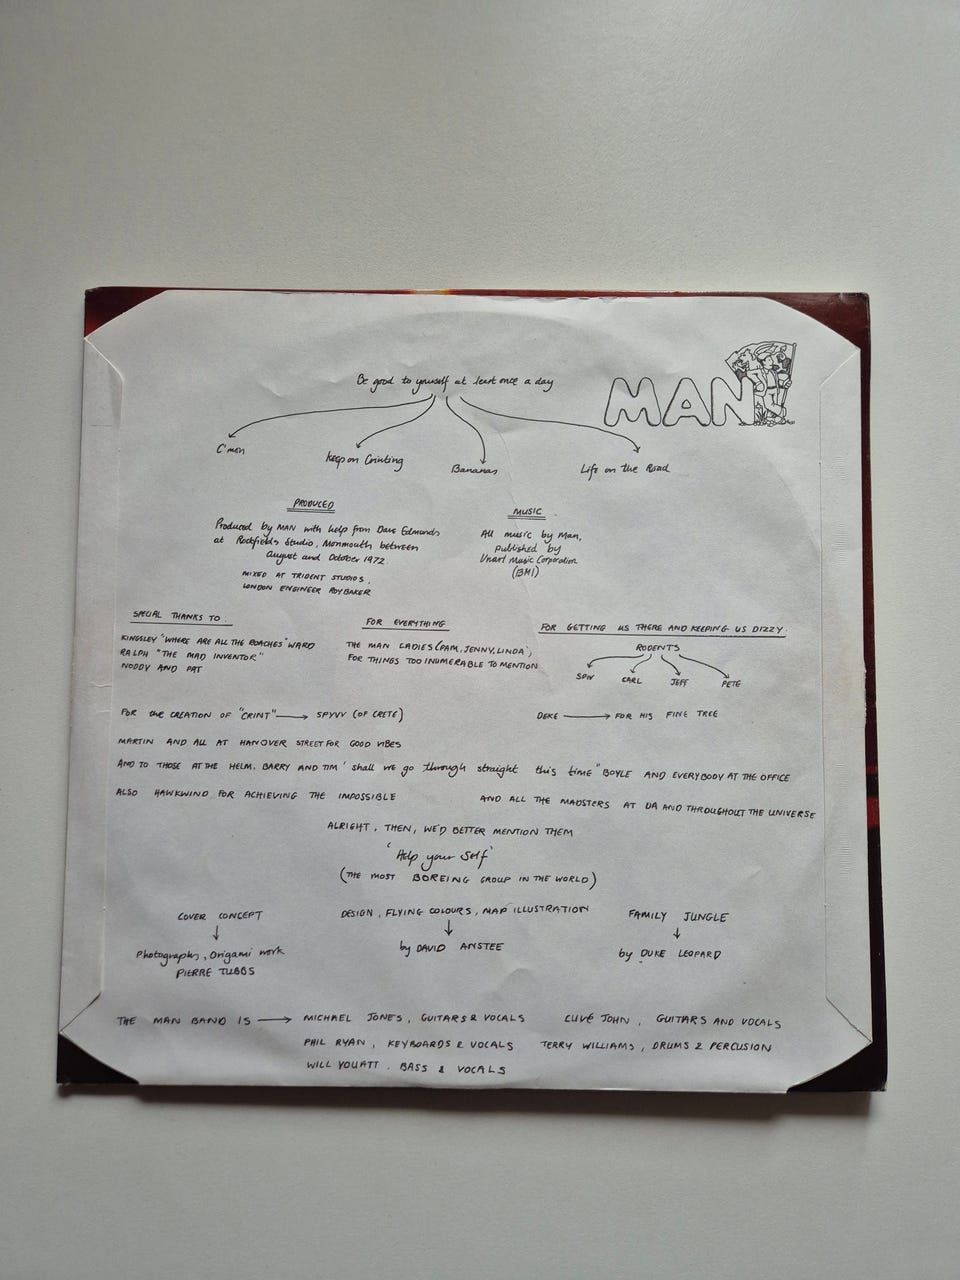 Be good to yourself at least once a day
MAN
C'mon
Keep on Crinting
Bananas
Life on the Road
PRODUCED
Produced by MAN with help from Dave Edmunds
at Rockfields Studio, Monmouth between
August and October 1972.
MIXED AT TRIDENT STUDIOS,
LONDON ENGINEER ROY BAKER
MUSIC
All music by Man,
published by
Unart Music Corporation
(BMI)
SPECIAL THANKS TO:
KINGSLEY "WHERE ARE ALL THE ROACHES" WARD
RALPH "THE MAD INVENTOR"
NODDY AND PAT
FOR EVERYTHING
THE MAN LADIES (PAM, JENNY, LINDA,)
FOR THINGS TOO INUMERABLE TO MENTION
FOR GETTING US THERE AND KEEPING US DIZZY:
RODENTS
SPIV CARL JEFF PETE
FOR the CREATION OF "CRINT" → SPYVV (OF CRETE)
DEKE → FOR HIS FINE TREE
MARTIN AND ALL AT HANOVER STREET FOR GOOD VIBES
AND TO THOSE AT THE HELM. BARRY AND TIM 'shall we go through straight this time" BOYLE AND EVERYBODY AT THE OFFICE
ALSO HAWKWIND FOR ACHIEVING THE IMPOSSIBLE
AND ALL THE MADSTERS AT UA AND THROUGHOUT THE UNIVERSE
ALRIGHT, THEN, WE'D BETTER MENTION THEM
'Help your Self'
(THE MOST BOREING GROUP IN THE WORLD)
COVER CONCEPT
Photographs, Origami work
PIERRE TUBBS
DESIGN, FLYING COLOURS, MAP ILLUSTRATION
by DAVID ANSTEE
FAMILY JUNGLE
by DUKE LEOPARD
THE MAN BAND IS → MICHAEL JONES, GUITARS & VOCALS CLIVE JOHN, GUITARS AND VOCALS
PHIL RYAN, KEYBOARDS & VOCALS TERRY WILLIAMS, DRUMS & PERCUSION
WILL YOUATT. BASS & VOCALS